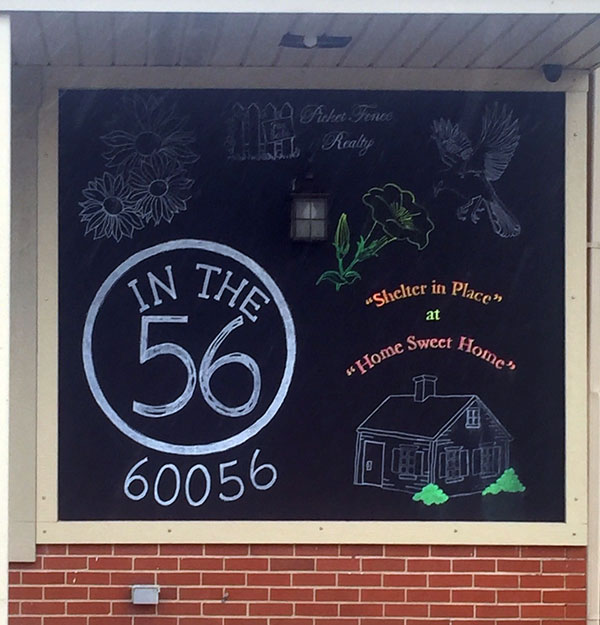 Picket Fence
Realty
IN THE
56
60056
"Shelter in Place"
at
"Home Sweet Home"